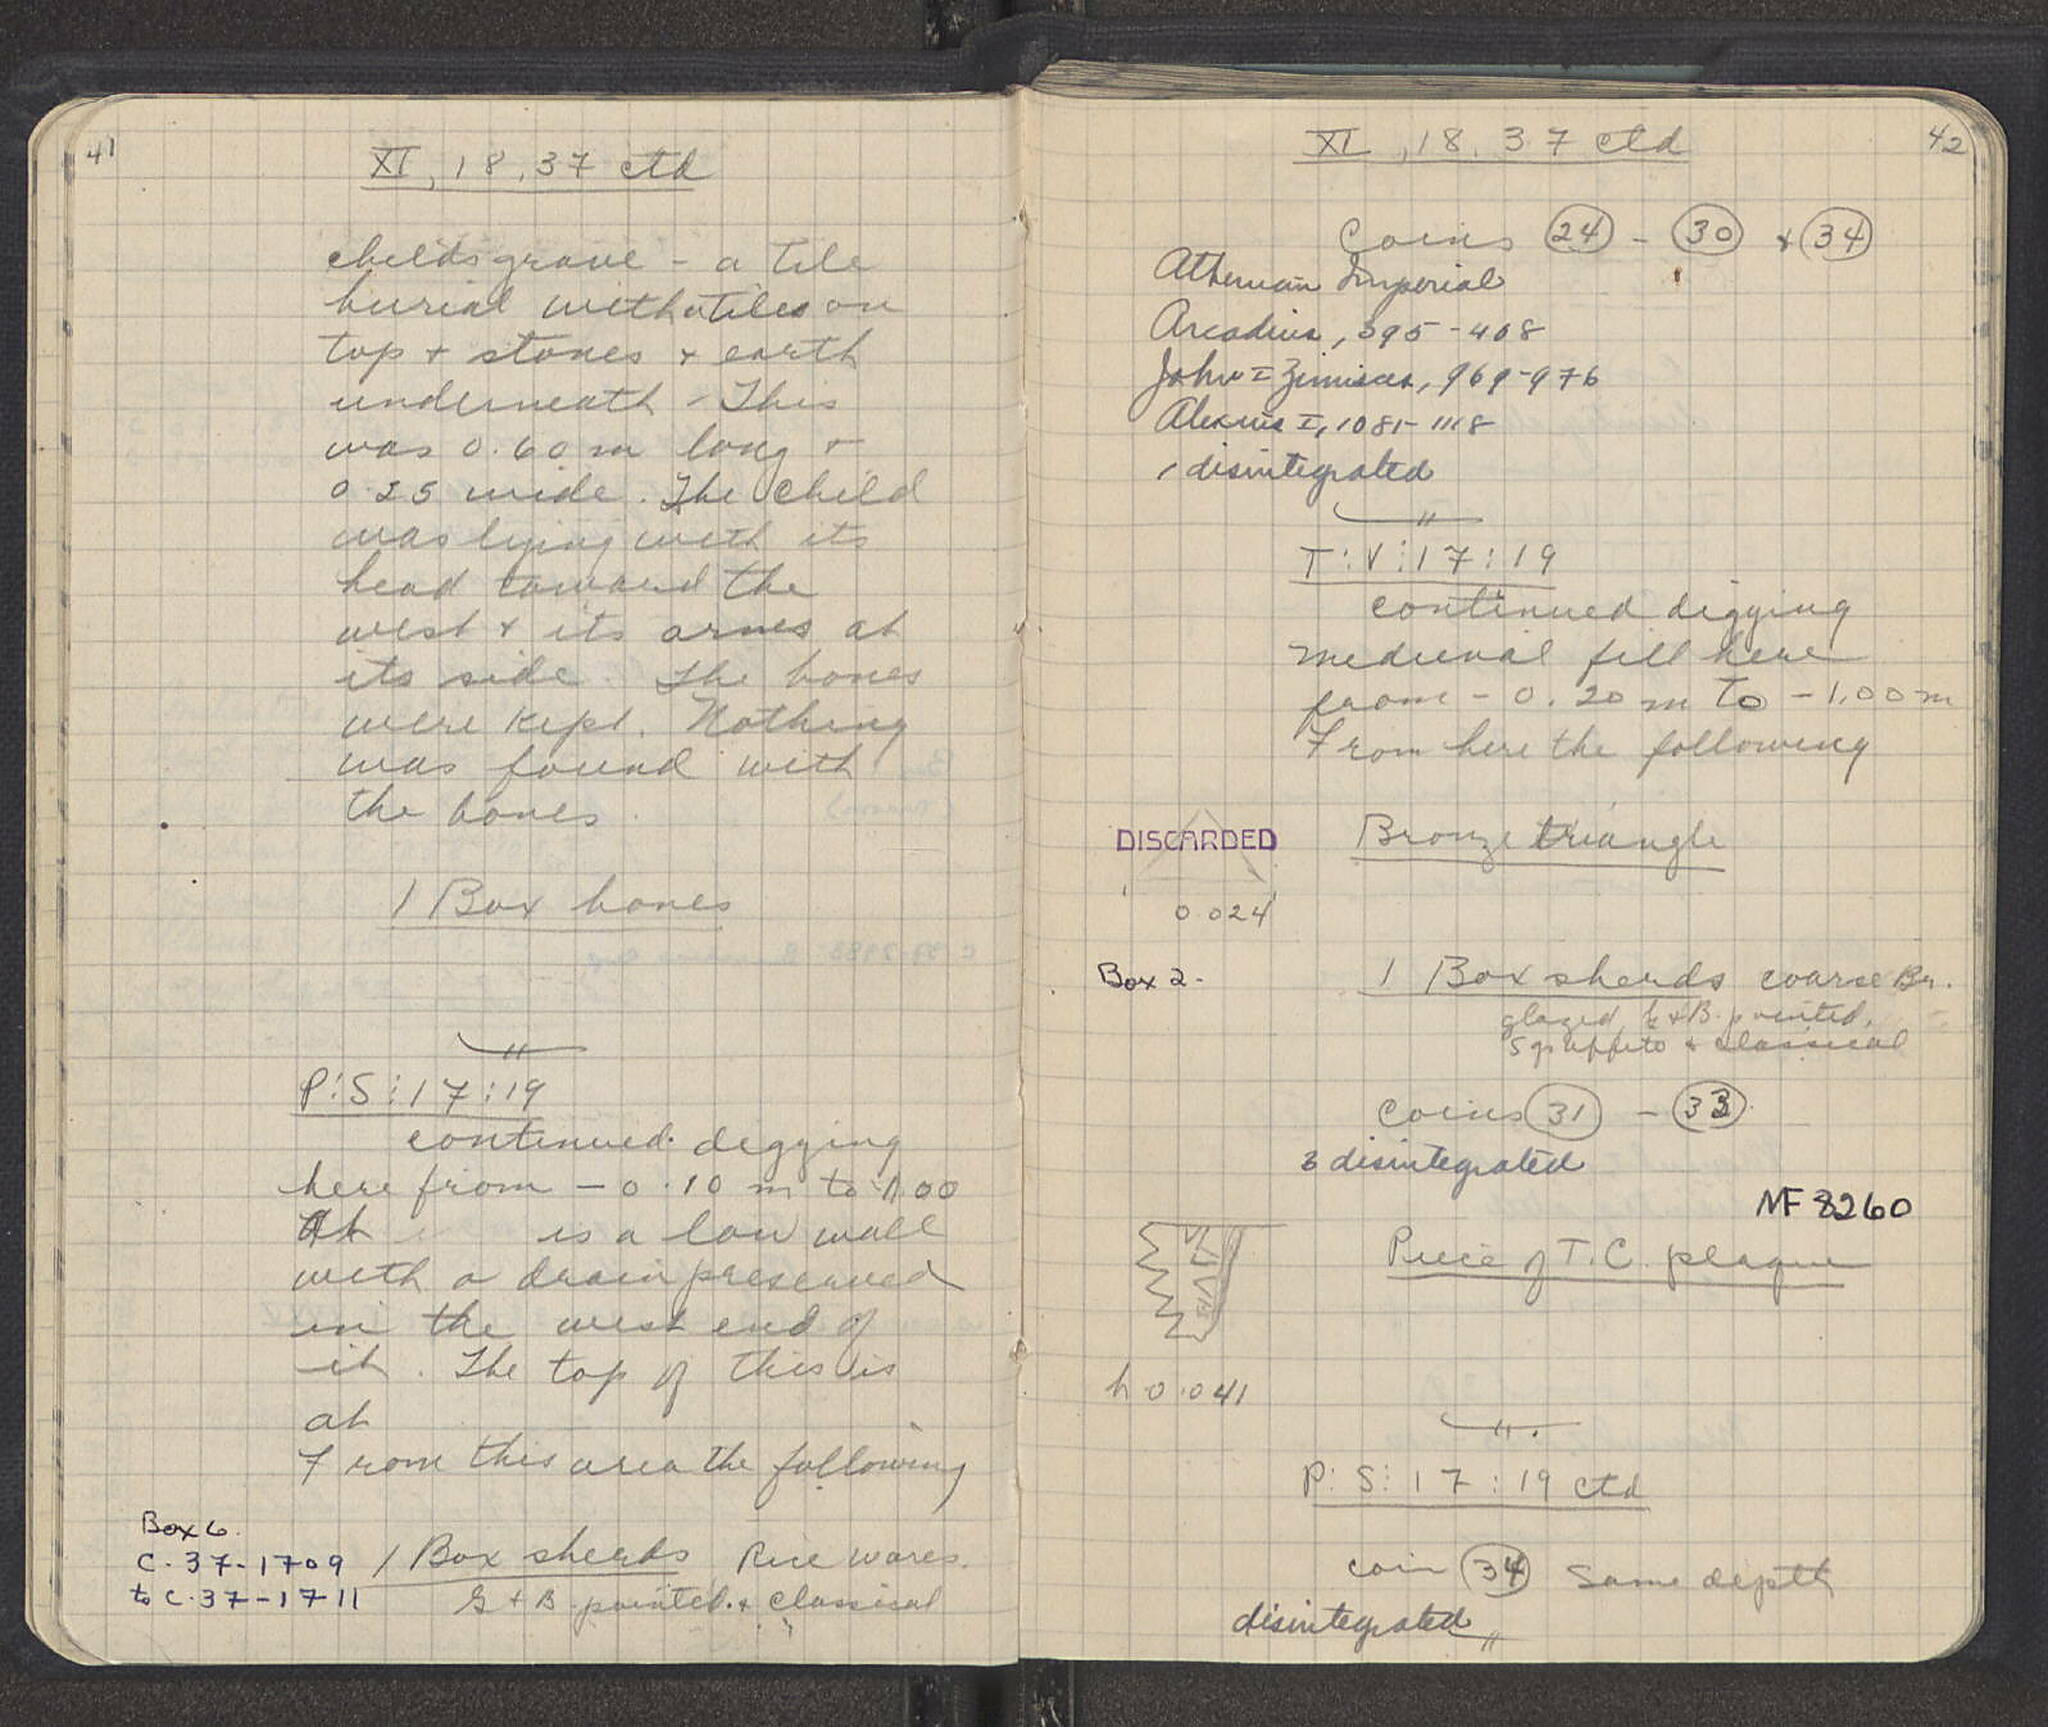 41
XI, 18, 37 ctd
childs grave - a tile
burial with tiles on
top + stones + earth
underneath - This
was 0.60 m long +
0.25 wide. The child
was lying with its
head toward the
west + its arms at
its side. The bones
were kept. Nothing
was found with
the bones.
1 Box bones
P:S:17:19
continued digging
here from -0.10 m to -1.00
At is a low wall
with a drain preserved
in the west end of
it. The top of this is
at
From this area the following
Box 6.
C.37-1709
to C.37-1711
1 Box sherds Rice wares.
G + B painted + classical
42
XI, 18, 37 ctd
Coins 24 - 30 + 34
Athenian Imperial
Arcadius, 395-408
John I Zimisces, 969-976
Alexius I, 1081-1118
1 disintegrated
T:V:17:19
continued digging
medieval fill here
from -0.20 m to -1.00 m
From here the following
DISCARDED
Bronze triangle
0.024
Box 2.
1 Box sherds coarse Br.
glazed, G + B. painted,
Sgraffito + classical
Coins 31 - 33.
3 disintegrated
MF 8260
Piece of T.C. plaque
h 0.041
P:S:17:19 ctd
coin 34 Same depth
disintegrated